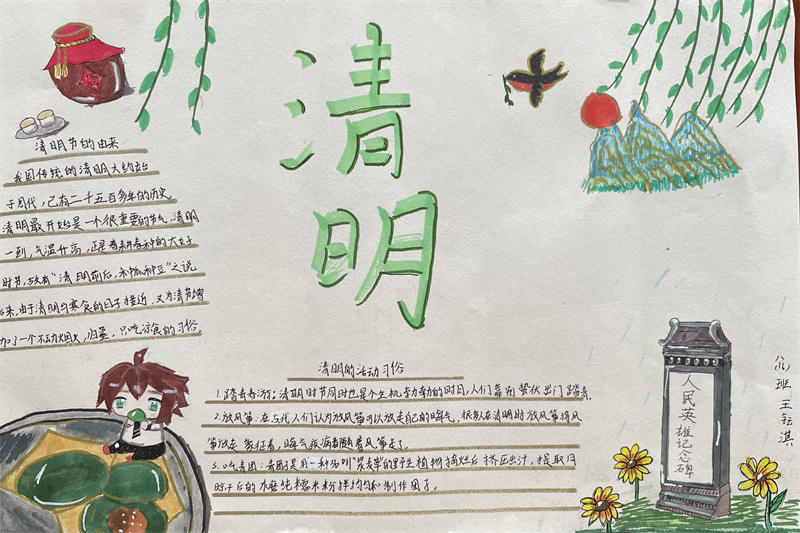 清明
清明节的由来
我国传统的清明大约始
于周代，已有二千五百多年的历史
清明最开始是一个很重要的节气，清明
一到，气温升高，正是春耕春种的大好
时节，故有“清明前后，种瓜种豆”之说
后来，由于清明与寒食的日子接近，又为清节增
加了一个不动烟火，扫墓，只吃凉食的习俗
清明的活动习俗
1.踏青春游：清明时节同时也是个生机勃勃的时日，人们靠别蛰伏出门踏青
2.放风筝：在古代人们认为放风筝可以放走自己的晦气，很多在清明时放风筝将风
筝放走 象征着，晦气疾病者随着风筝走了。
3.吃青团：青团是用一种名叫“浆麦草”的野生植物捣烂后挤压出汁，提取同
晾干后的水磨纯糯米粉拌均匀和制作团子。
人民英雄记念碑
班 王钰淇